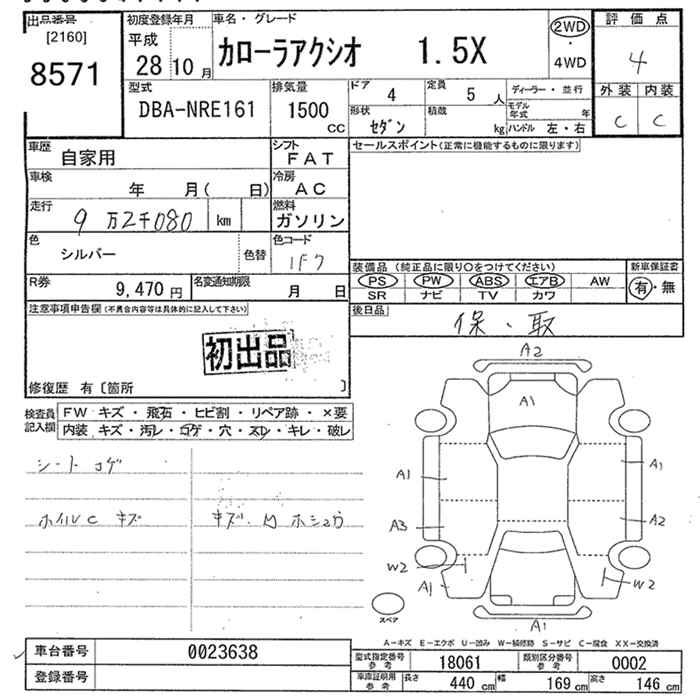 出品番号
[2160]
8571
初度登録年月
平成
28 10 月
車名・グレード
カローラアクシオ 1.5X
2WD
・
4WD
評価点
4
外装 内装
C C
型式
DBA-NRE161
排気量
1500
CC
ドア 4
定員 5 人
ディーラー・並行
形状 セダン
積載 kg
モデル年式 年
ハンドル 左・右
車歴 自家用
シフト FAT
車検 年 月( 日)
冷房 AC
走行 9万2千080 km
燃料 ガソリン
色 シルバー 色替
色コード 1F7
R券 9,470 円
名変通知期限 月 日
セールスポイント(正常に機能するものに限ります)
装備品 (純正品に限り○をつけてください)
PS PW ABS エアB AW
SR ナビ TV カワ
新車保証書
有・無
後日品
保・取
注意事項申告欄(不具合内容等は具体的に記入して下さい)
初出品
修復歴 有〔箇所 〕
検査員記入欄
FW キズ・飛石・ヒビ割・リペア跡・×要
内装 キズ・汚レ・コゲ・穴・スレ・キレ・破レ
シート コゲ
ホイルC キズ
キズ・凹 ホシュウ
A2
A1
A1
A1
A3
A2
W2
A1
W2
A1
スペア
A-キズ E-エクボ U-凹み W-補修跡 S-サビ C-腐食 XX-交換済
車台番号 0023638
登録番号
型式指定番号 参考 18061
類別区分番号 参考 0002
車庫証明用 参考 長さ 440 cm 幅 169 cm 高さ 146 cm